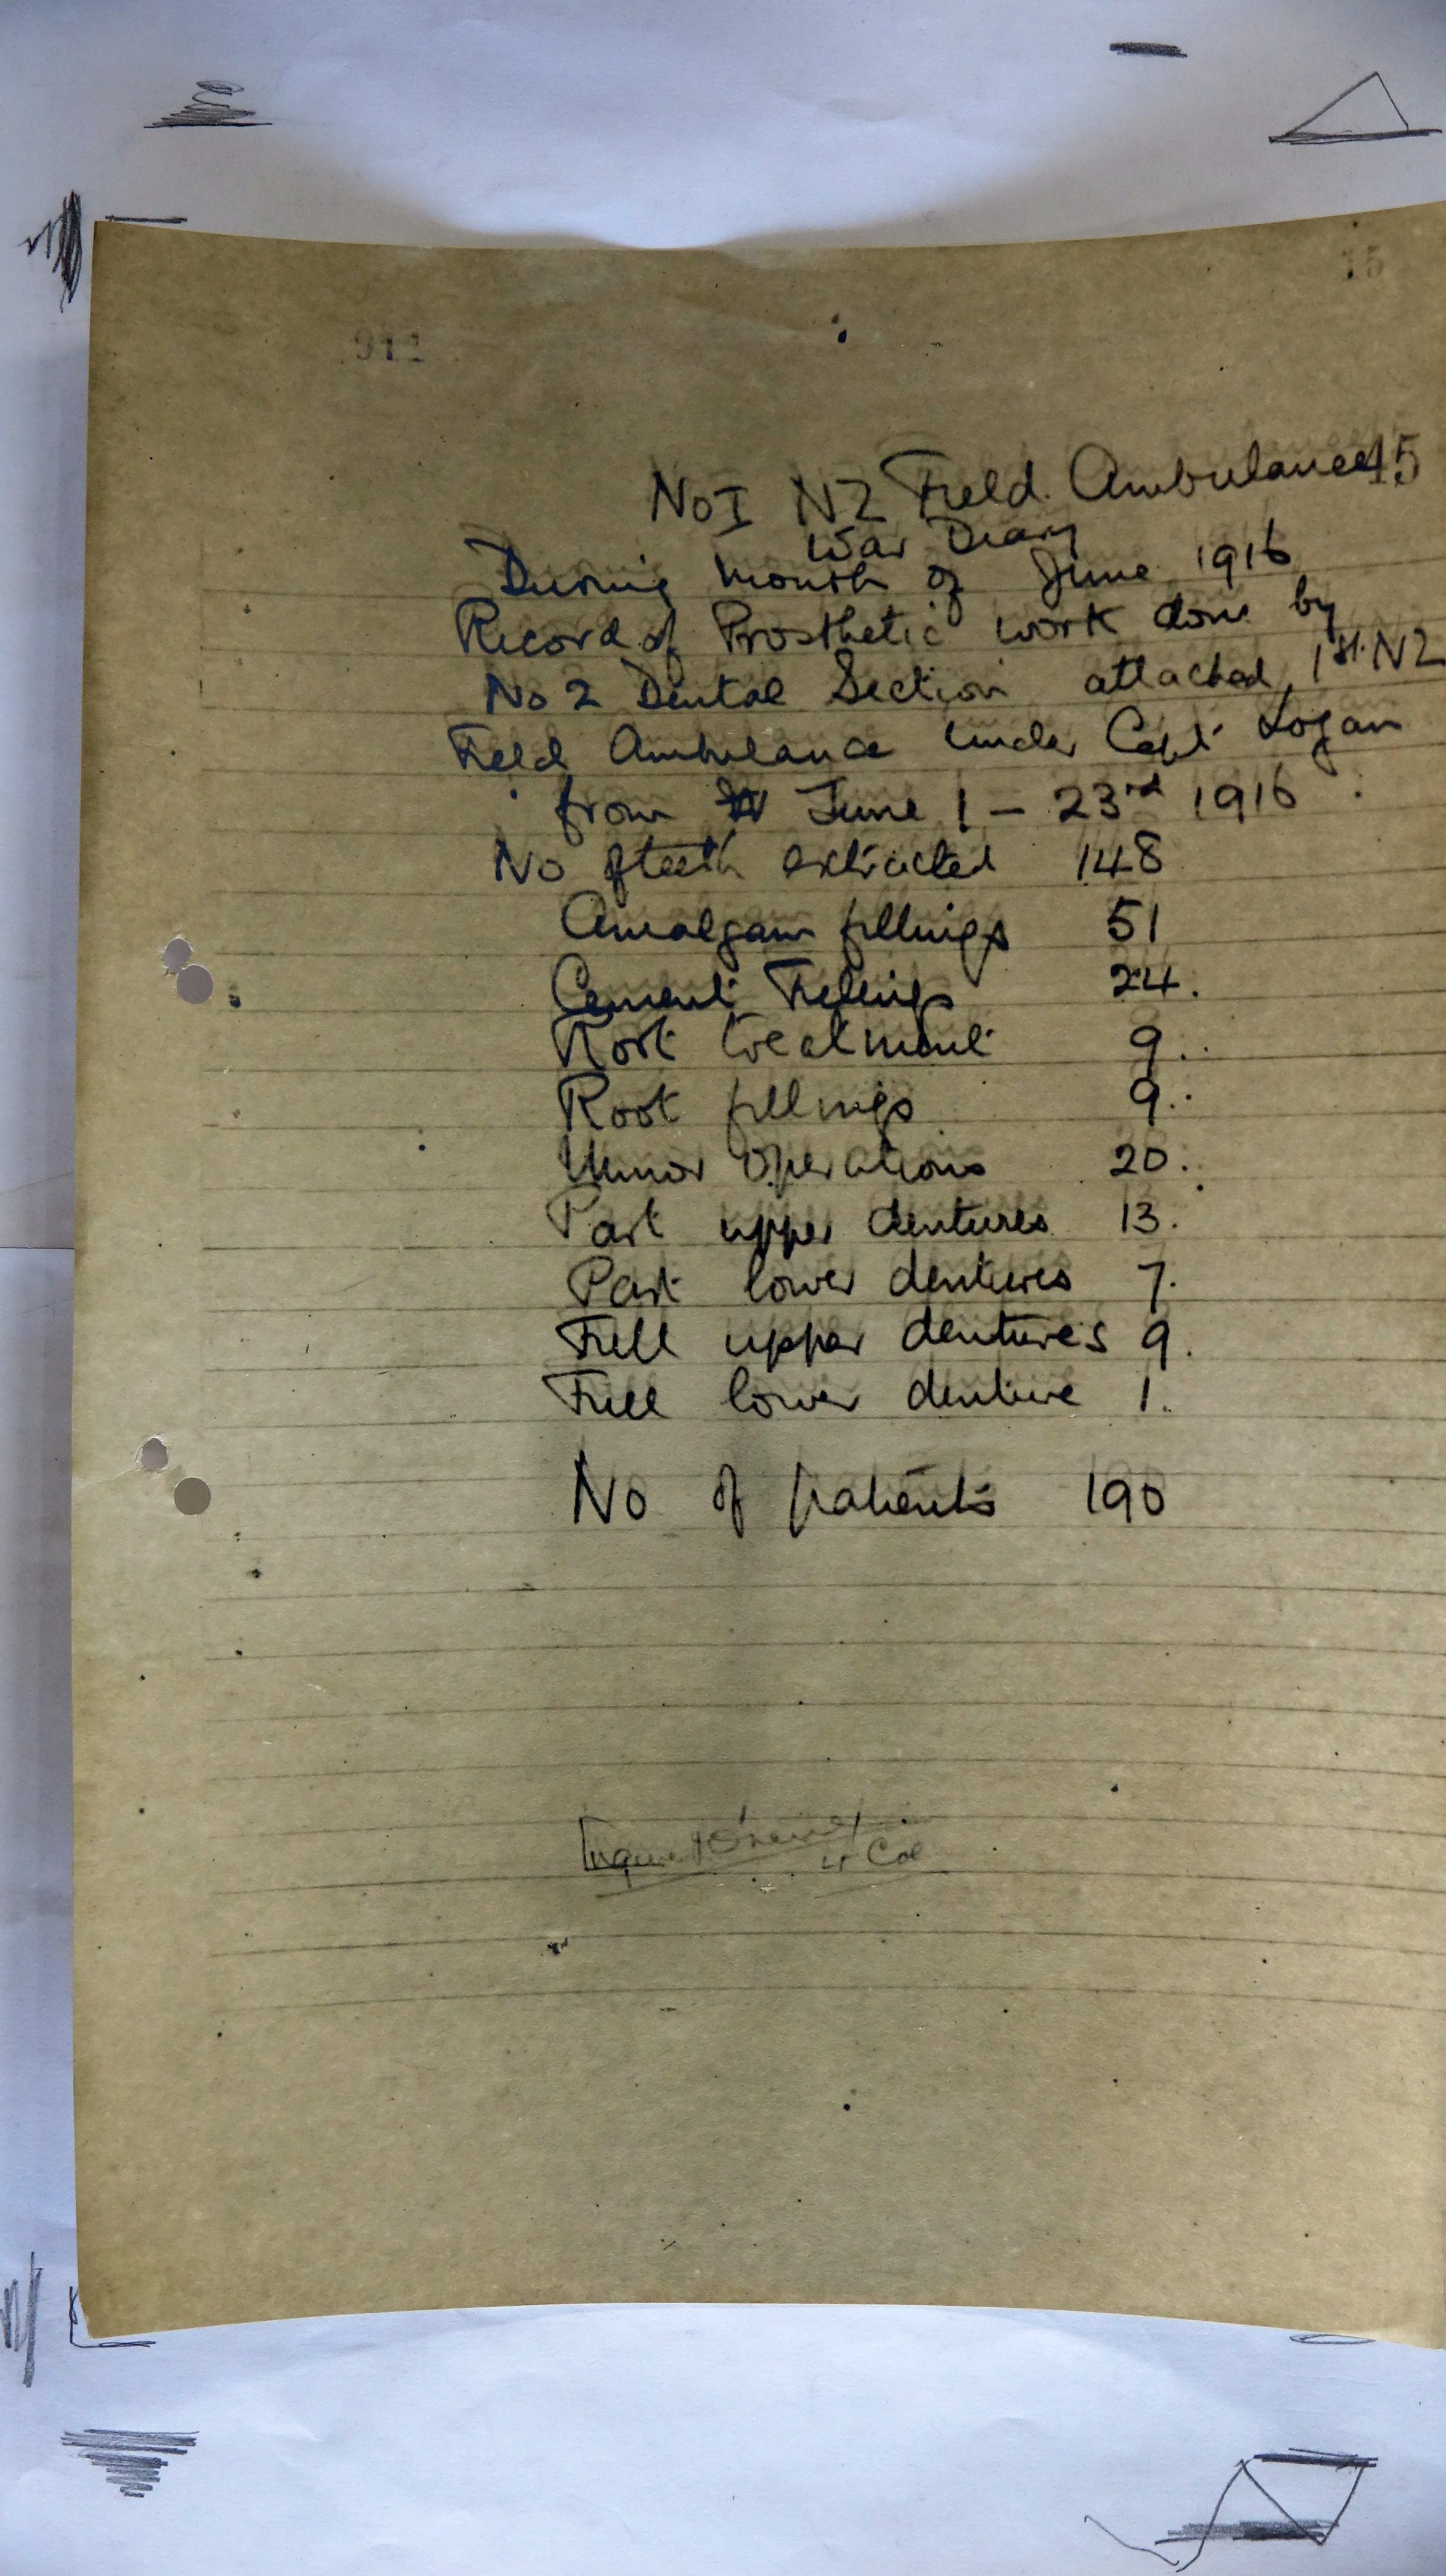 15
911
No I NZ Field Ambulance 15
War Diary
During month of June 1916
Record of Prosthetic work done by
No 2 Dental Section attached 1st. NZ
Field Ambulance under Capt Logan
from June 1 - 23rd 1916
No of teeth extracted 148
Amalgam fillings 51
Cement Fillings 24.
Root treatment 9.
Root fillings 9.
Minor Operations 20.
Part upper dentures 13.
Part lower dentures 7.
Full upper dentures 9.
Full lower denture 1.
No of patients 190
Lt Col